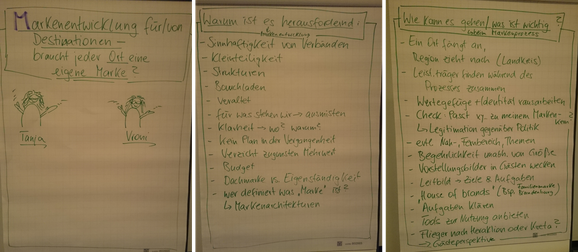 Markenentwicklung für/von
Destinationen –
braucht jeder Ort eine
eigene Marke?
Tanja
Vroni
Warum ist es herausfordernd?
Markenentwicklung
- Sinnhaftigkeit von Verbänden
- Kleinteiligkeit
- Strukturen
- Bauchladen
- veraltet
- für was stehen wir → ausmisten
- Klarheit → wo? warum?
- Kein Plan in der Vergangenheit
- Verzicht zugunsten Mehrwert
- Budget
- Dachmarke vs. Eigenständigkeit
- wer definiert was „Marke" ist?
↳ Markenarchitekturen
Wie kann es gehen / was ist wichtig?
Markenprozess
- Ein Ort fängt an,
Region zieht nach (Landkreis)
- Leistträger binden während des
Prozesses zusammen
- Wertegefüge + Identität
- Check: Passt xy. zu meinem Marken-
kern?
↳ Legitimation gegenüber Politik
- evtl. Nah-, Fernbereich, Themen
- Begehrlichkeit unabh. von Größe
- Vorstellungsbilder in Gästen wecken
- Leitbild → Ziele & Aufgaben
- „House of brands" (Bsp. Brandenburg)
Familienmarke
- Aufgaben klären
- Tools zur Nutzung anbieten
- Flieger nach Heraklion oder Kreta?
→ Gästeperspektive